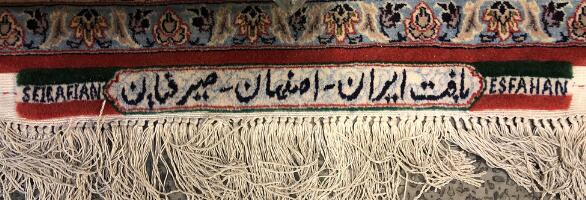 SEIRAFIAN بافت ایران - اصفهان - صیرفیان ESFAHAN